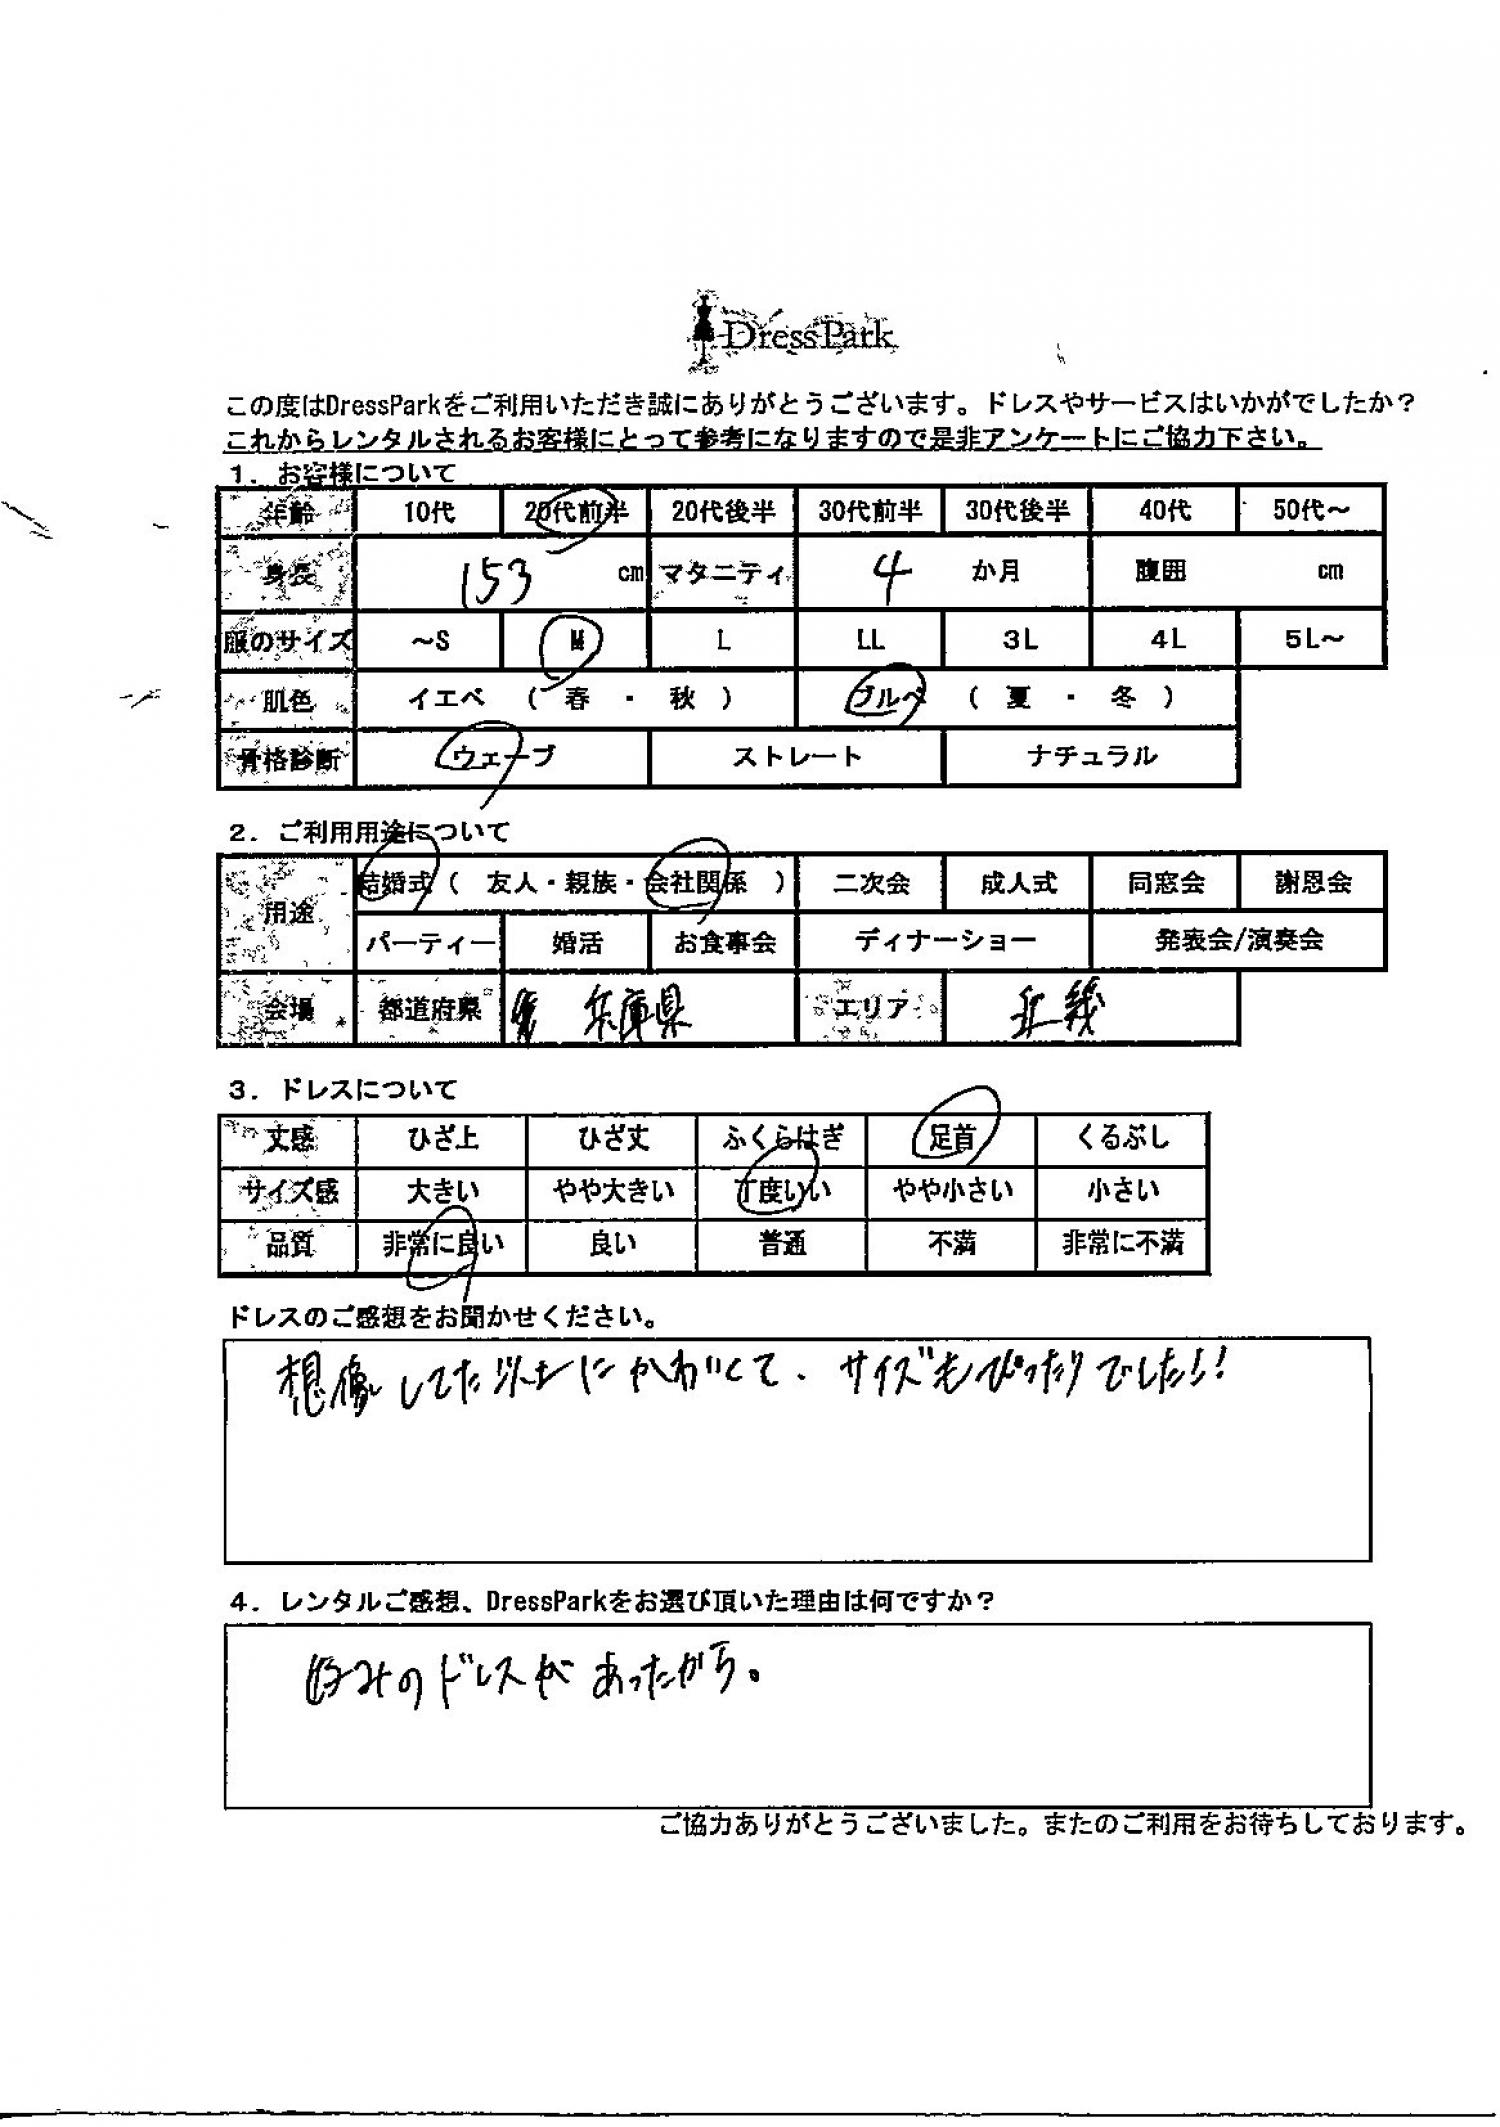 DressPark
この度はDressParkをご利用いただき誠にありがとうございます。ドレスやサービスはいかがでしたか？
これからレンタルされるお客様にとって参考になりますので是非アンケートにご協力下さい。
1．お客様について
年齢 10代 20代前半 20代後半 30代前半 30代後半 40代 50代～
身長 153 cm マタニティ 4 か月 腹囲 cm
服のサイズ ～S M L LL 3L 4L 5L～
肌色 イエベ （ 春 ・ 秋 ） ブルベ （ 夏 ・ 冬 ）
骨格診断 ウェーブ ストレート ナチュラル
2．ご利用用途について
用途 結婚式（ 友人・親族・会社関係 ） 二次会 成人式 同窓会 謝恩会
パーティー 婚活 お食事会 ディナーショー 発表会/演奏会
会場 都道府県 兵庫県 エリア 近畿
3．ドレスについて
丈感 ひざ上 ひざ丈 ふくらはぎ 足首 くるぶし
サイズ感 大きい やや大きい 丁度いい やや小さい 小さい
品質 非常に良い 良い 普通 不満 非常に不満
ドレスのご感想をお聞かせください。
想像してた以上にかわいくて、サイズもぴったりでした!!
4．レンタルご感想、DressParkをお選び頂いた理由は何ですか？
好みのドレスがあったから。
ご協力ありがとうございました。またのご利用をお待ちしております。